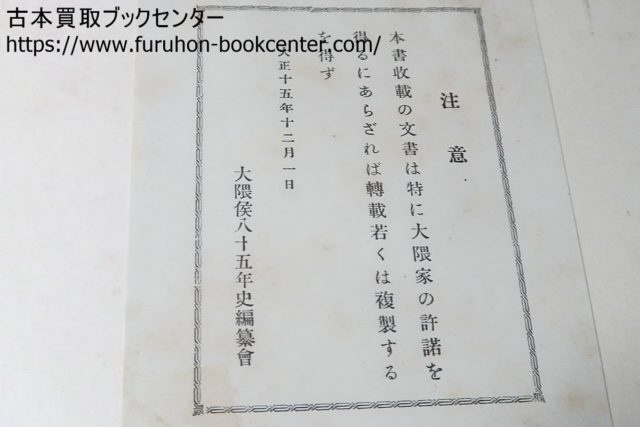 古本買取ブックセンター
https://www.furuhon-bookcenter.com/
注意
本書収載の文書は特に大隈家の許諾を
得るにあらざれば轉載若くは複製する
を得ず
大正十五年十二月一日
大隈侯八十五年史編纂會